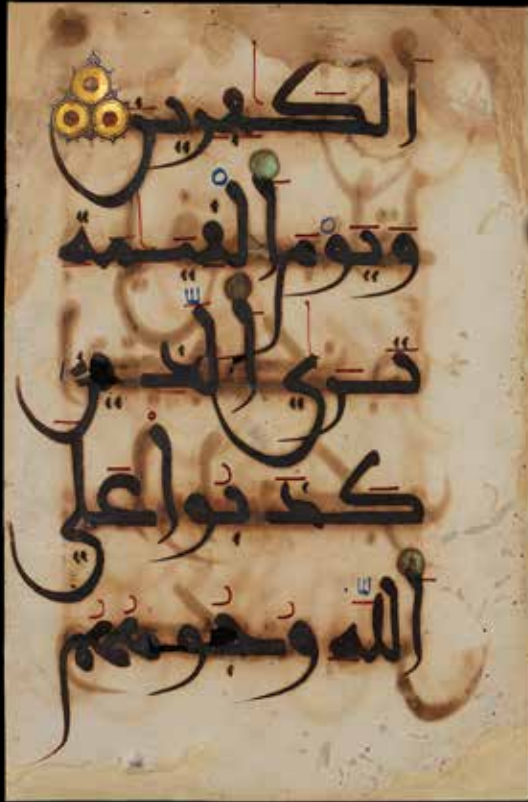 اَلْكٰفِرِينَ
وَيَوْمَ اَلْقِيَٰمَةِ
تَرَي اَلَّذِينَ
كَذَبُواْ عَلَي
اَللَّهِ وُجُوهُهُم